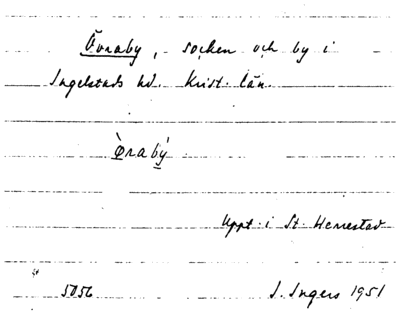 Övraby, socken och by i
Ingelstads hd. Krist. län.
Øràbý
Uppt. i St. Herrestad
5056
I. Ingers 1951